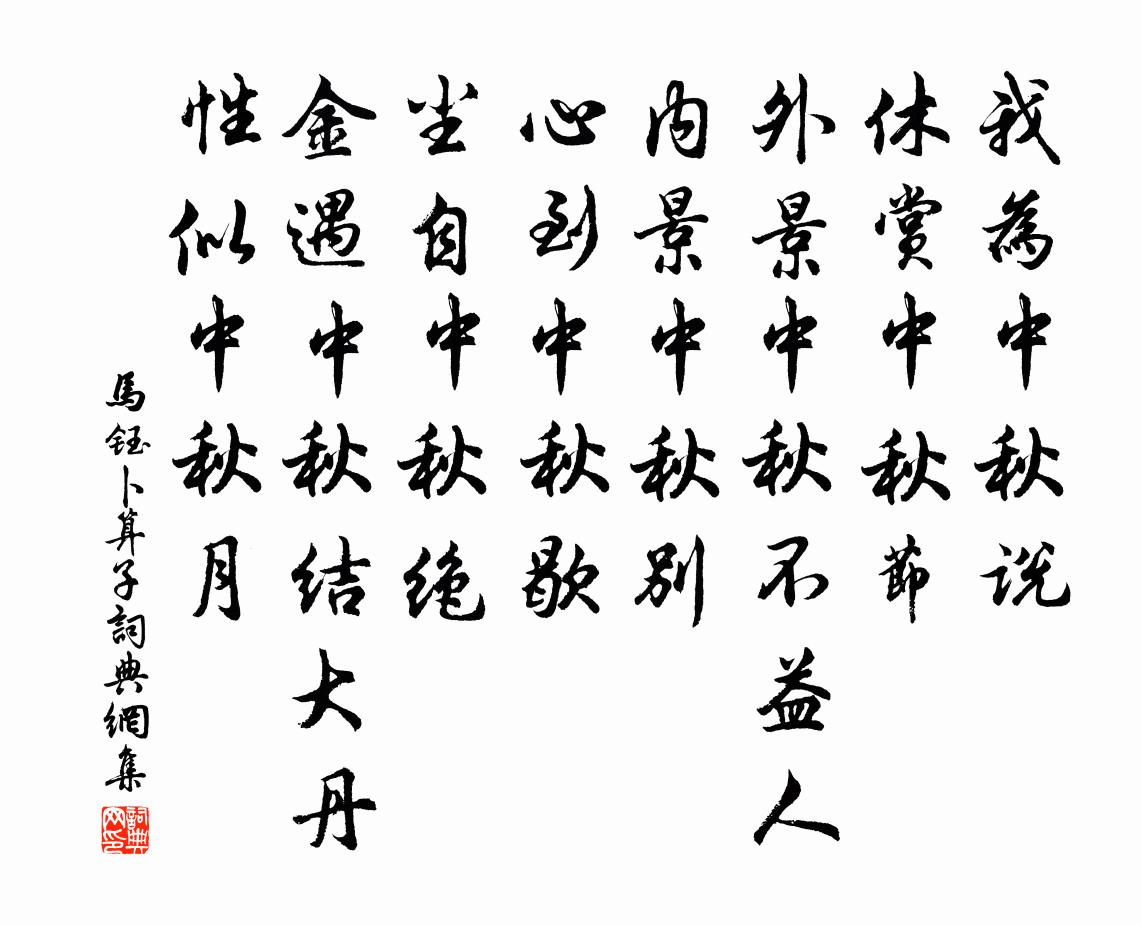 我為中秋说
休赏中秋節
外景中秋不益人
内景中秋别
心到中秋歇
坐自中秋绝
金遇中秋结大丹
性似中秋月
馬鈺卜算子詞典網集
詞典网印